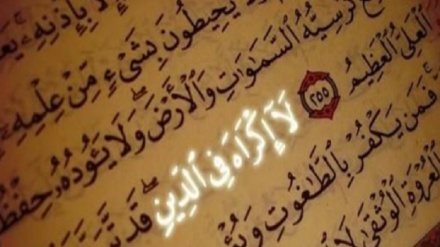 إِلَّا بِإِذْنِهِۦ
يُحِيطُونَ بِشَىْءٍ مِّنْ عِلْمِهِۦٓ
كُرْسِيُّهُ ٱلسَّمَٰوَٰتِ وَٱلْأَرْضَ وَلَا يَـُٔودُهُۥ
ٱلْعَلِىُّ ٱلْعَظِيمُ ٢٥٥ لَآ إِكْرَاهَ فِى ٱلدِّينِ قَد
فَمَن يَكْفُرْ بِٱلطَّٰغُوتِ
ٱلْعُرْوَةِ ٱلْوُثْقَىٰ لَا